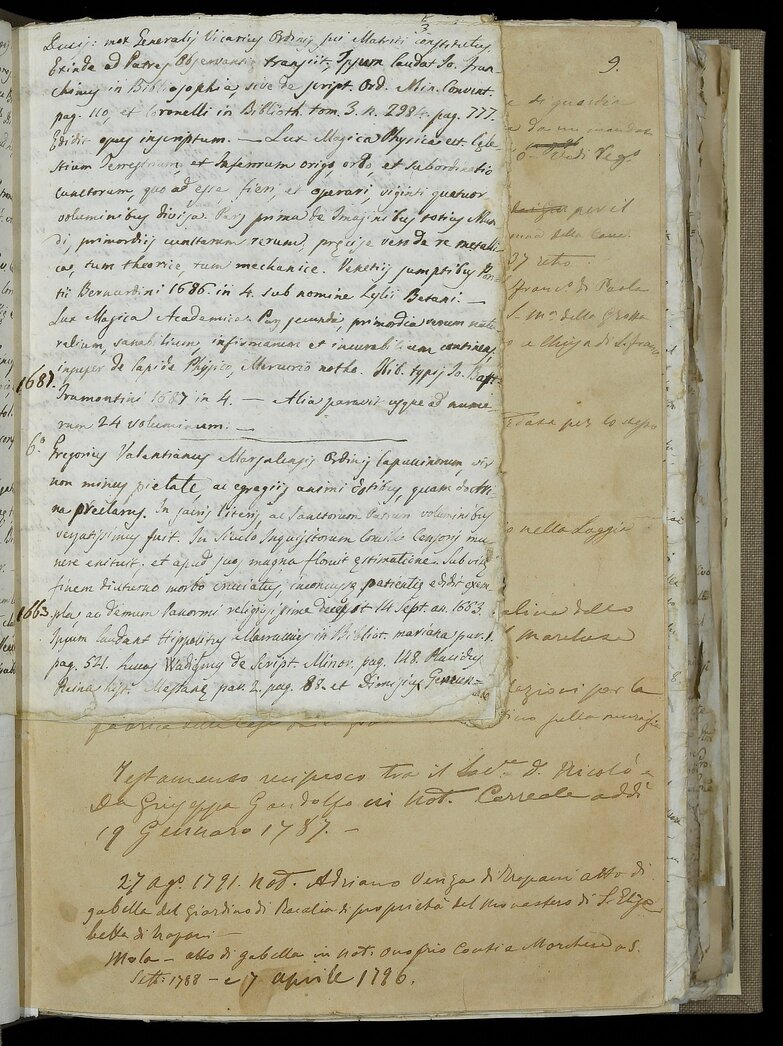 Ducis: mox Generalis Vicarius Ordinis sui Matriti constitutus
Exinde ad Patres Observant: transiit, Ipsum laudat Jo. Fran-
chinus in Bibliosophia sive de script. Ord. Min. Convent.
pag. 110, et Coronelli in Biblioth. tom. 3. n. 2984. pag. 777.
Edidit opus inscriptum. — Lux Magica Physica est Cęle
stium Terrestrium, et Inferrum origo, ordo, et subordinatio
cunctorum, quo ad esse, fieri, et operari, viginti quatuor
voluminibus divisa. Pars prima de Imaginibus totius Mun
di, primordiis cunctarum rerum, pręcise vero de re metalli
ca, tum theorice, tum mechanice. Venetiis sumptibus Pon-
tii Bernardini 1686 in 4. sub nomine Lylii Betani. —
Lux Magica Academica Pars secunda, primordia rerum natu
ralium, sanabilium, infirmarum et incurabilium continens,
insuper de lapide Physico, Mercurio notho. Hib. typis Jo. Bapt.
1687. Tramontini 1687 in 4. — Alia paravit usque ad nume
rum 24 voluminum: —
6.º Gregorius Valentianus Marsalensis Ordinis Capuccinorum vir
non minus pietate, ac egregiis animi dotibus, quam doctri
na pręclarus. In sacris literis, ac Sanctorum Patrum voluminibus
versatissimus fuit. In Siculo Inquisitorum Consilio Censoris mu
nere enituit. et apud suos magna floruit ęstimatione. Sub vitę
finem diuturno morbo cruciatus, inconcussę patientię edidit exem
1663. pla, ac demum Panormi religiosissime decessit 14 Sept. an. 1663.
Ipsum laudant Hippolitus Marraccius in Bibliot. mariana par. 1.
pag. 521. Lucas Wadingus de Script. Minor. pag. 148. Placidus
Reina hist. Messanę par. 2. pag. 88. et Dionysius Genuen-
9.
di guardia
Vedi
per il
37
Franc.º di Paola
S. Mª della Grotta
e Chiesa di S. Franc
per lo
nella Loggia
Marchese
per la
Testamento reciproco tra il D. Nicolò e
Da Giuseppa Gandolfo in Not. addì
19 Gennaro 1787. —
27 agº 1791. Not. Adriano Venza di Trapani atto di
gabella del Giardino di proprietà del Monastero di S. Elisa
betta di Trapani —
Mola — atto di gabella in Not. Onofrio a 5.
Sett: 1788 — e 7 aprile 1796.